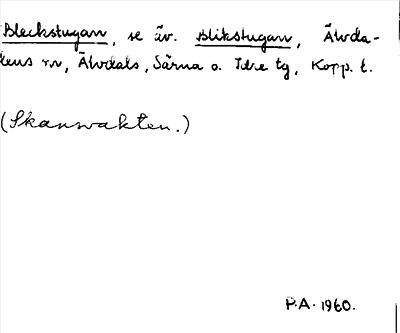 Bleckstugan, se äv. Blikstugan, Älvda-
lens rn, Älvdals, Särna o. Idre tg, Kopp. l.
(Skansvakten.)
P.A. 1960.